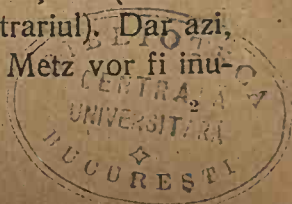 trariul). Dar azi,
Metz vor fi inu-
BIBLIOTECA
CENTRALĂ
UNIVERSITARĂ
2
BUCUREȘTI